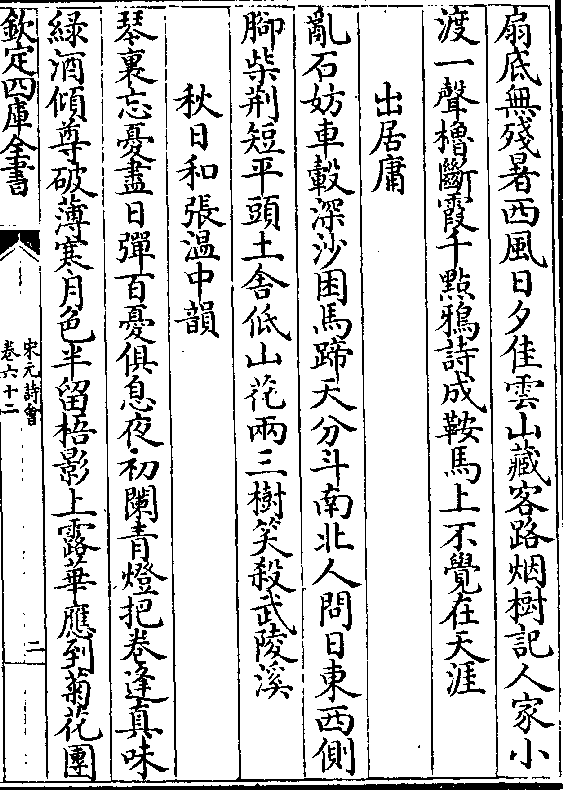 扇底無殘暑西風日夕佳雲山藏客路烟樹記人家小
渡一聲櫓斷霞千點鴉詩成鞍馬上不覺在天涯
出居庸
亂石妨車轂深沙困馬蹄天分斗南北人問日東西側
腳柴荆短平頭土舍低山花兩三樹笑殺武陵溪
秋日和張温中韻
琴裏忘憂盡日彈百憂俱息夜初闌青燈把卷逢真味
綠酒傾尊破薄寒月色半留梧影上露華應到菊花團
欽定四庫全書
宋元詩會
卷六十二
二